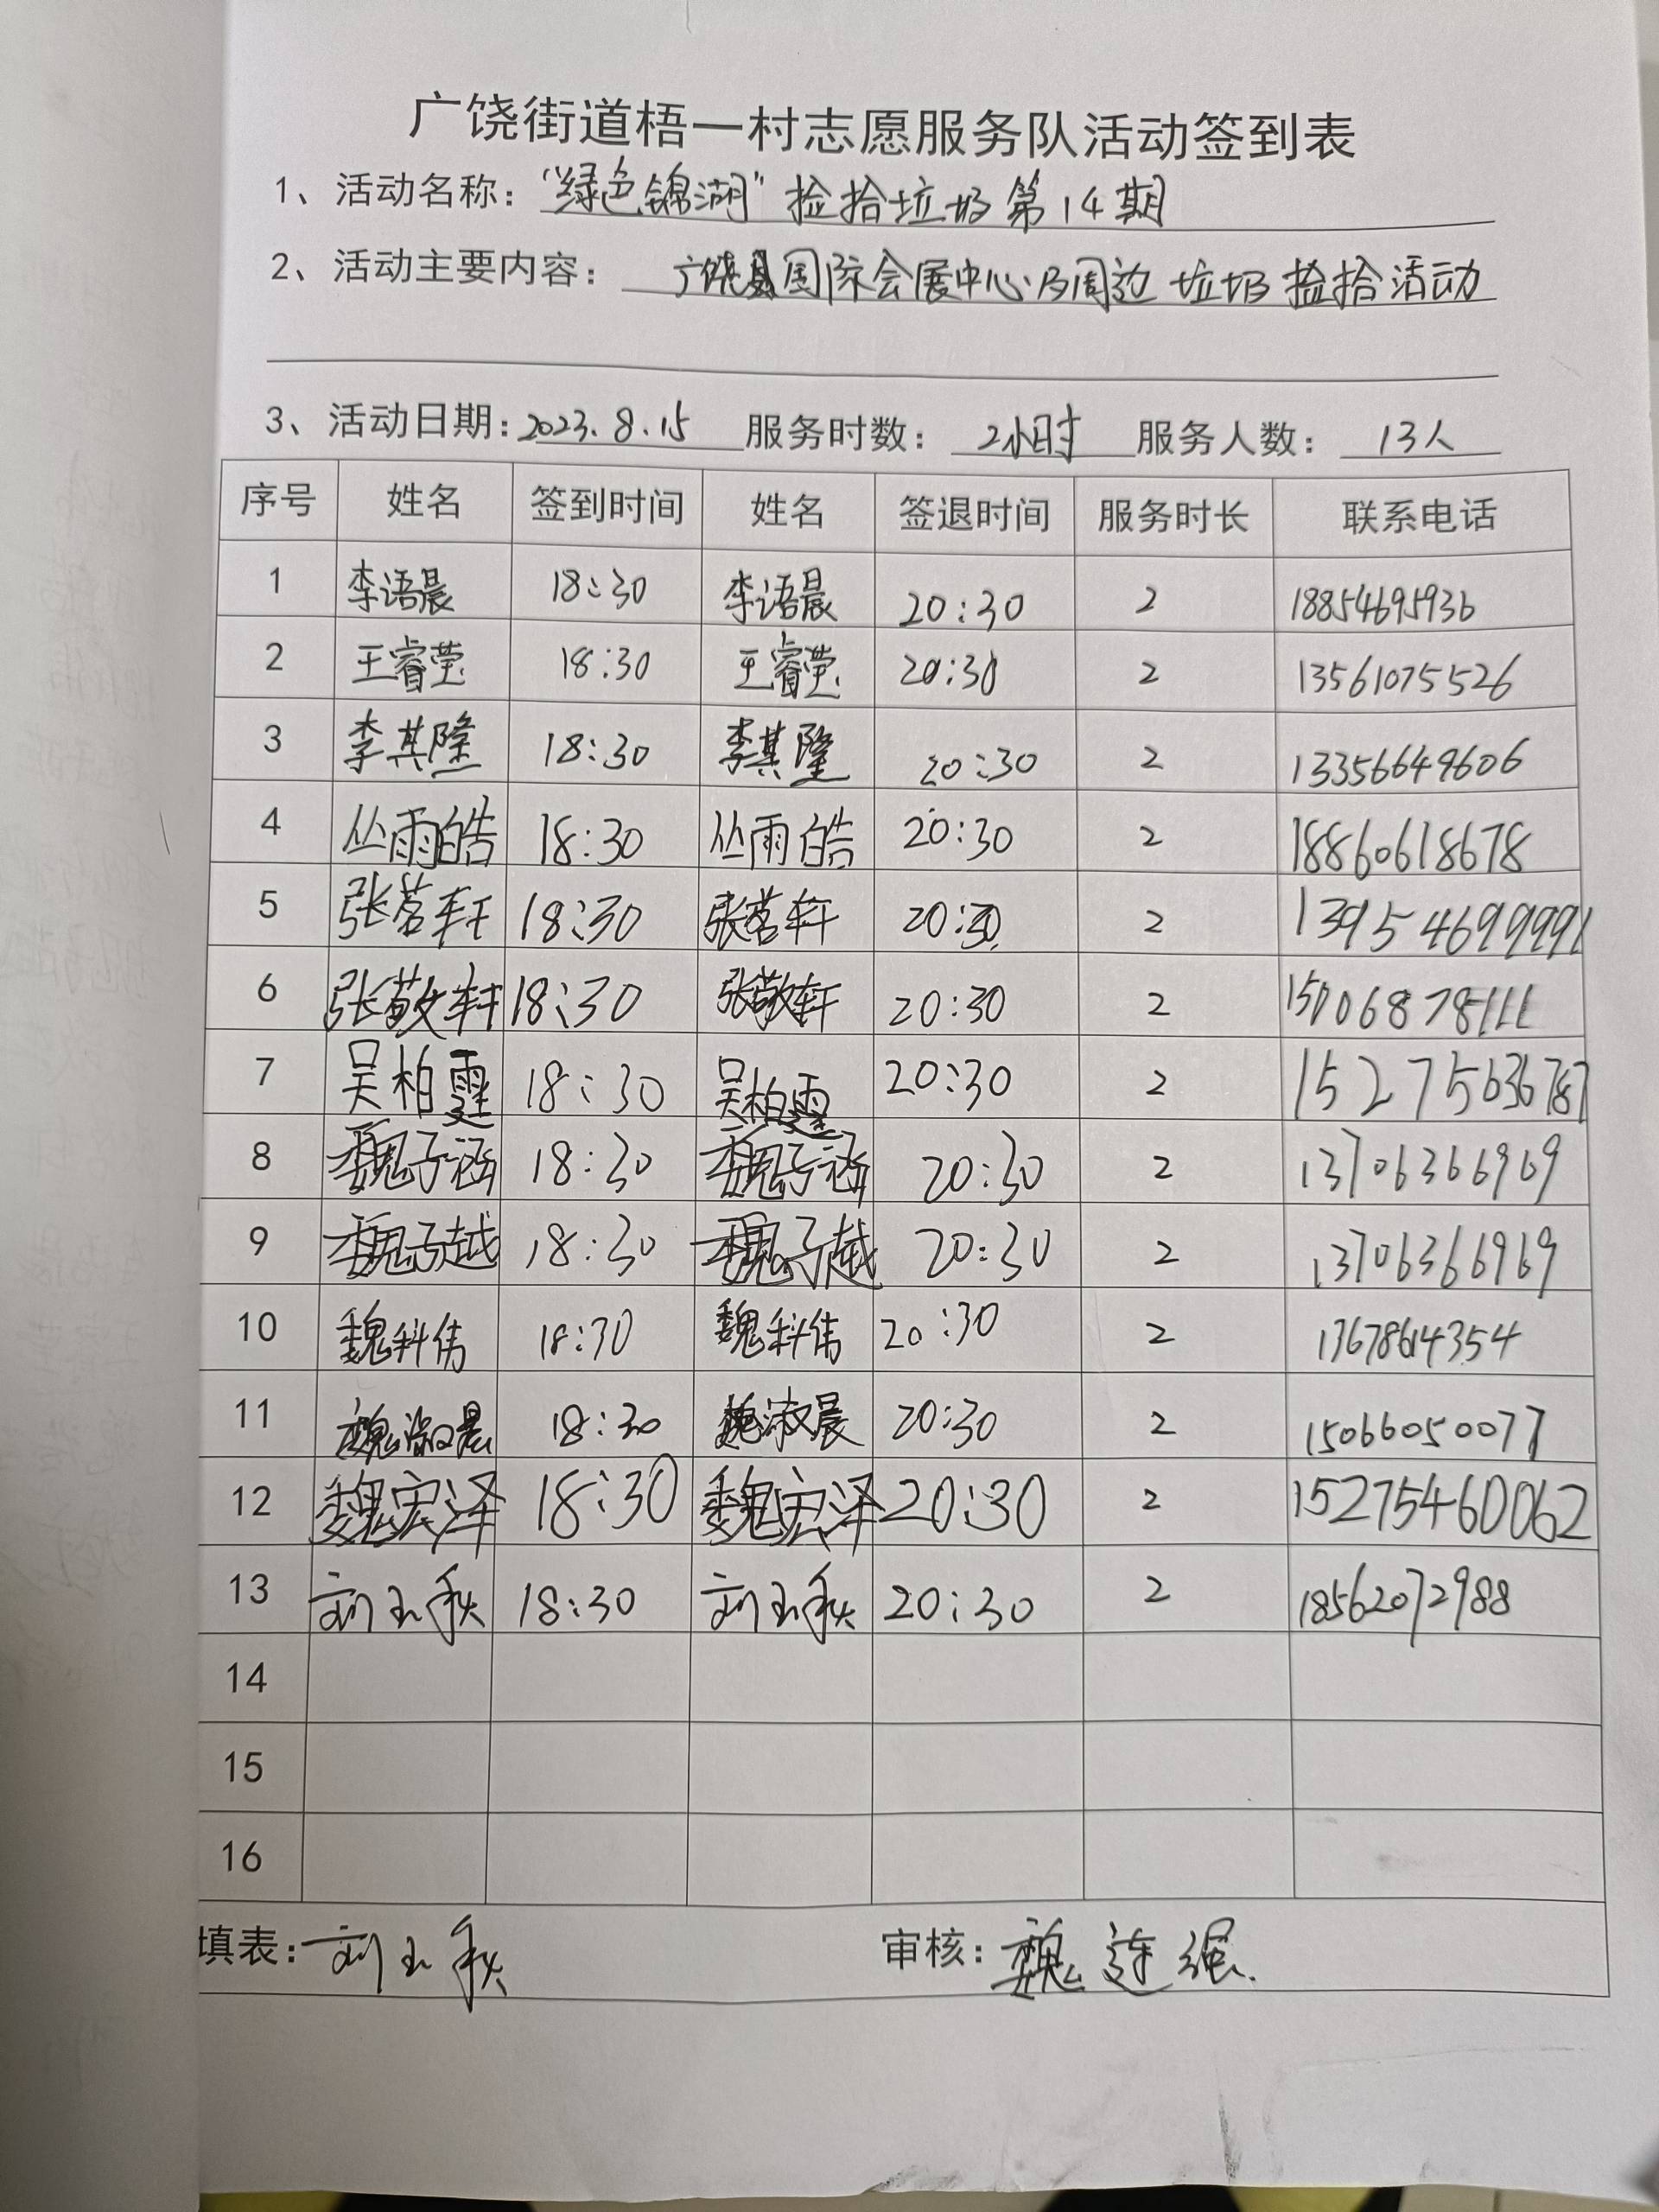 广饶街道梧一村志愿服务队活动签到表
1、活动名称："绿色锦湖"捡拾垃圾第14期
2、活动主要内容：广饶县国际会展中心及周边垃圾捡拾活动
3、活动日期：2023.8.15 服务时数：2小时 服务人数：13人
序号 姓名 签到时间 姓名 签退时间 服务时长 联系电话
1 李语晨 18:30 李语晨 20:30 2 18854695936
2 王睿莹 18:30 王睿莹 20:30 2 13561075526
3 李其隆 18:30 李其隆 20:30 2 13356649606
4 丛雨皓 18:30 丛雨皓 20:30 2 18860618678
5 张茗轩 18:30 张茗轩 20:30 2
6 张敬轩 18:30 张敬轩 20:30 2 15006878111
7 吴柏霆 18:30 吴柏霆 20:30 2 15275636787
8 魏子涵 18:30 魏子涵 20:30 2 13706366969
9 魏子越 18:30 魏子越 20:30 2 13706366969
10 魏科伟 18:30 魏科伟 20:30 2 13678614354
11 魏淑晨 18:30 魏淑晨 20:30 2 15066050077
12 魏宏泽 18:30 魏宏泽 20:30 2 15275460062
13 刘玉秋 18:30 刘玉秋 20:30 2 18562072988
14
15
16
填表：刘玉秋 审核：魏连强